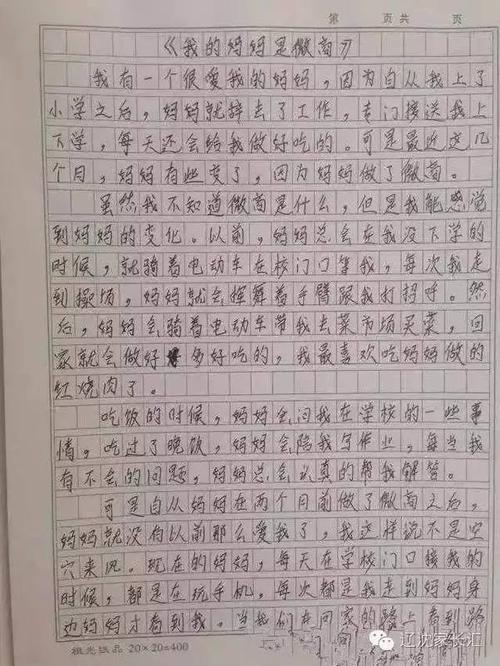 第 页共 页
《我的妈妈是微商》
我有一个很爱我的妈妈，因为自从我上了
小学之后，妈妈就辞去了工作，专门接送我上
下学，每天还会给我做好吃的。可是最近这几
个月，妈妈有些变了，因为妈妈做了微商。
虽然我不知道微商是什么，但是我能感觉
到妈妈的变化。以前，妈妈总会在我没下学的
时候，就骑着电动车在校门口等我，每次我走
到操场，妈妈就会挥舞着手臂跟我打招呼。然
后，妈妈会骑着电动车带我去菜市场买菜，回
家就会做好多好吃的，我最喜欢吃妈妈做的
红烧肉了。
吃饭的时候，妈妈会问我在学校的一些事
情，吃过了晚饭，妈妈会陪我写作业，每当我
有不会的问题，妈妈总会认真的帮我解答。
可是自从妈妈在两个月前做了微商之后，
妈妈就没有以前那么爱我了，我这样说不是空
穴来风。现在的妈妈，每天在学校门口接我的
时候，都是在玩手机，每次都是我走到妈妈身
边妈妈才看到我。当我们在回家的路上看到路
20×20=400
辽沈家长汇